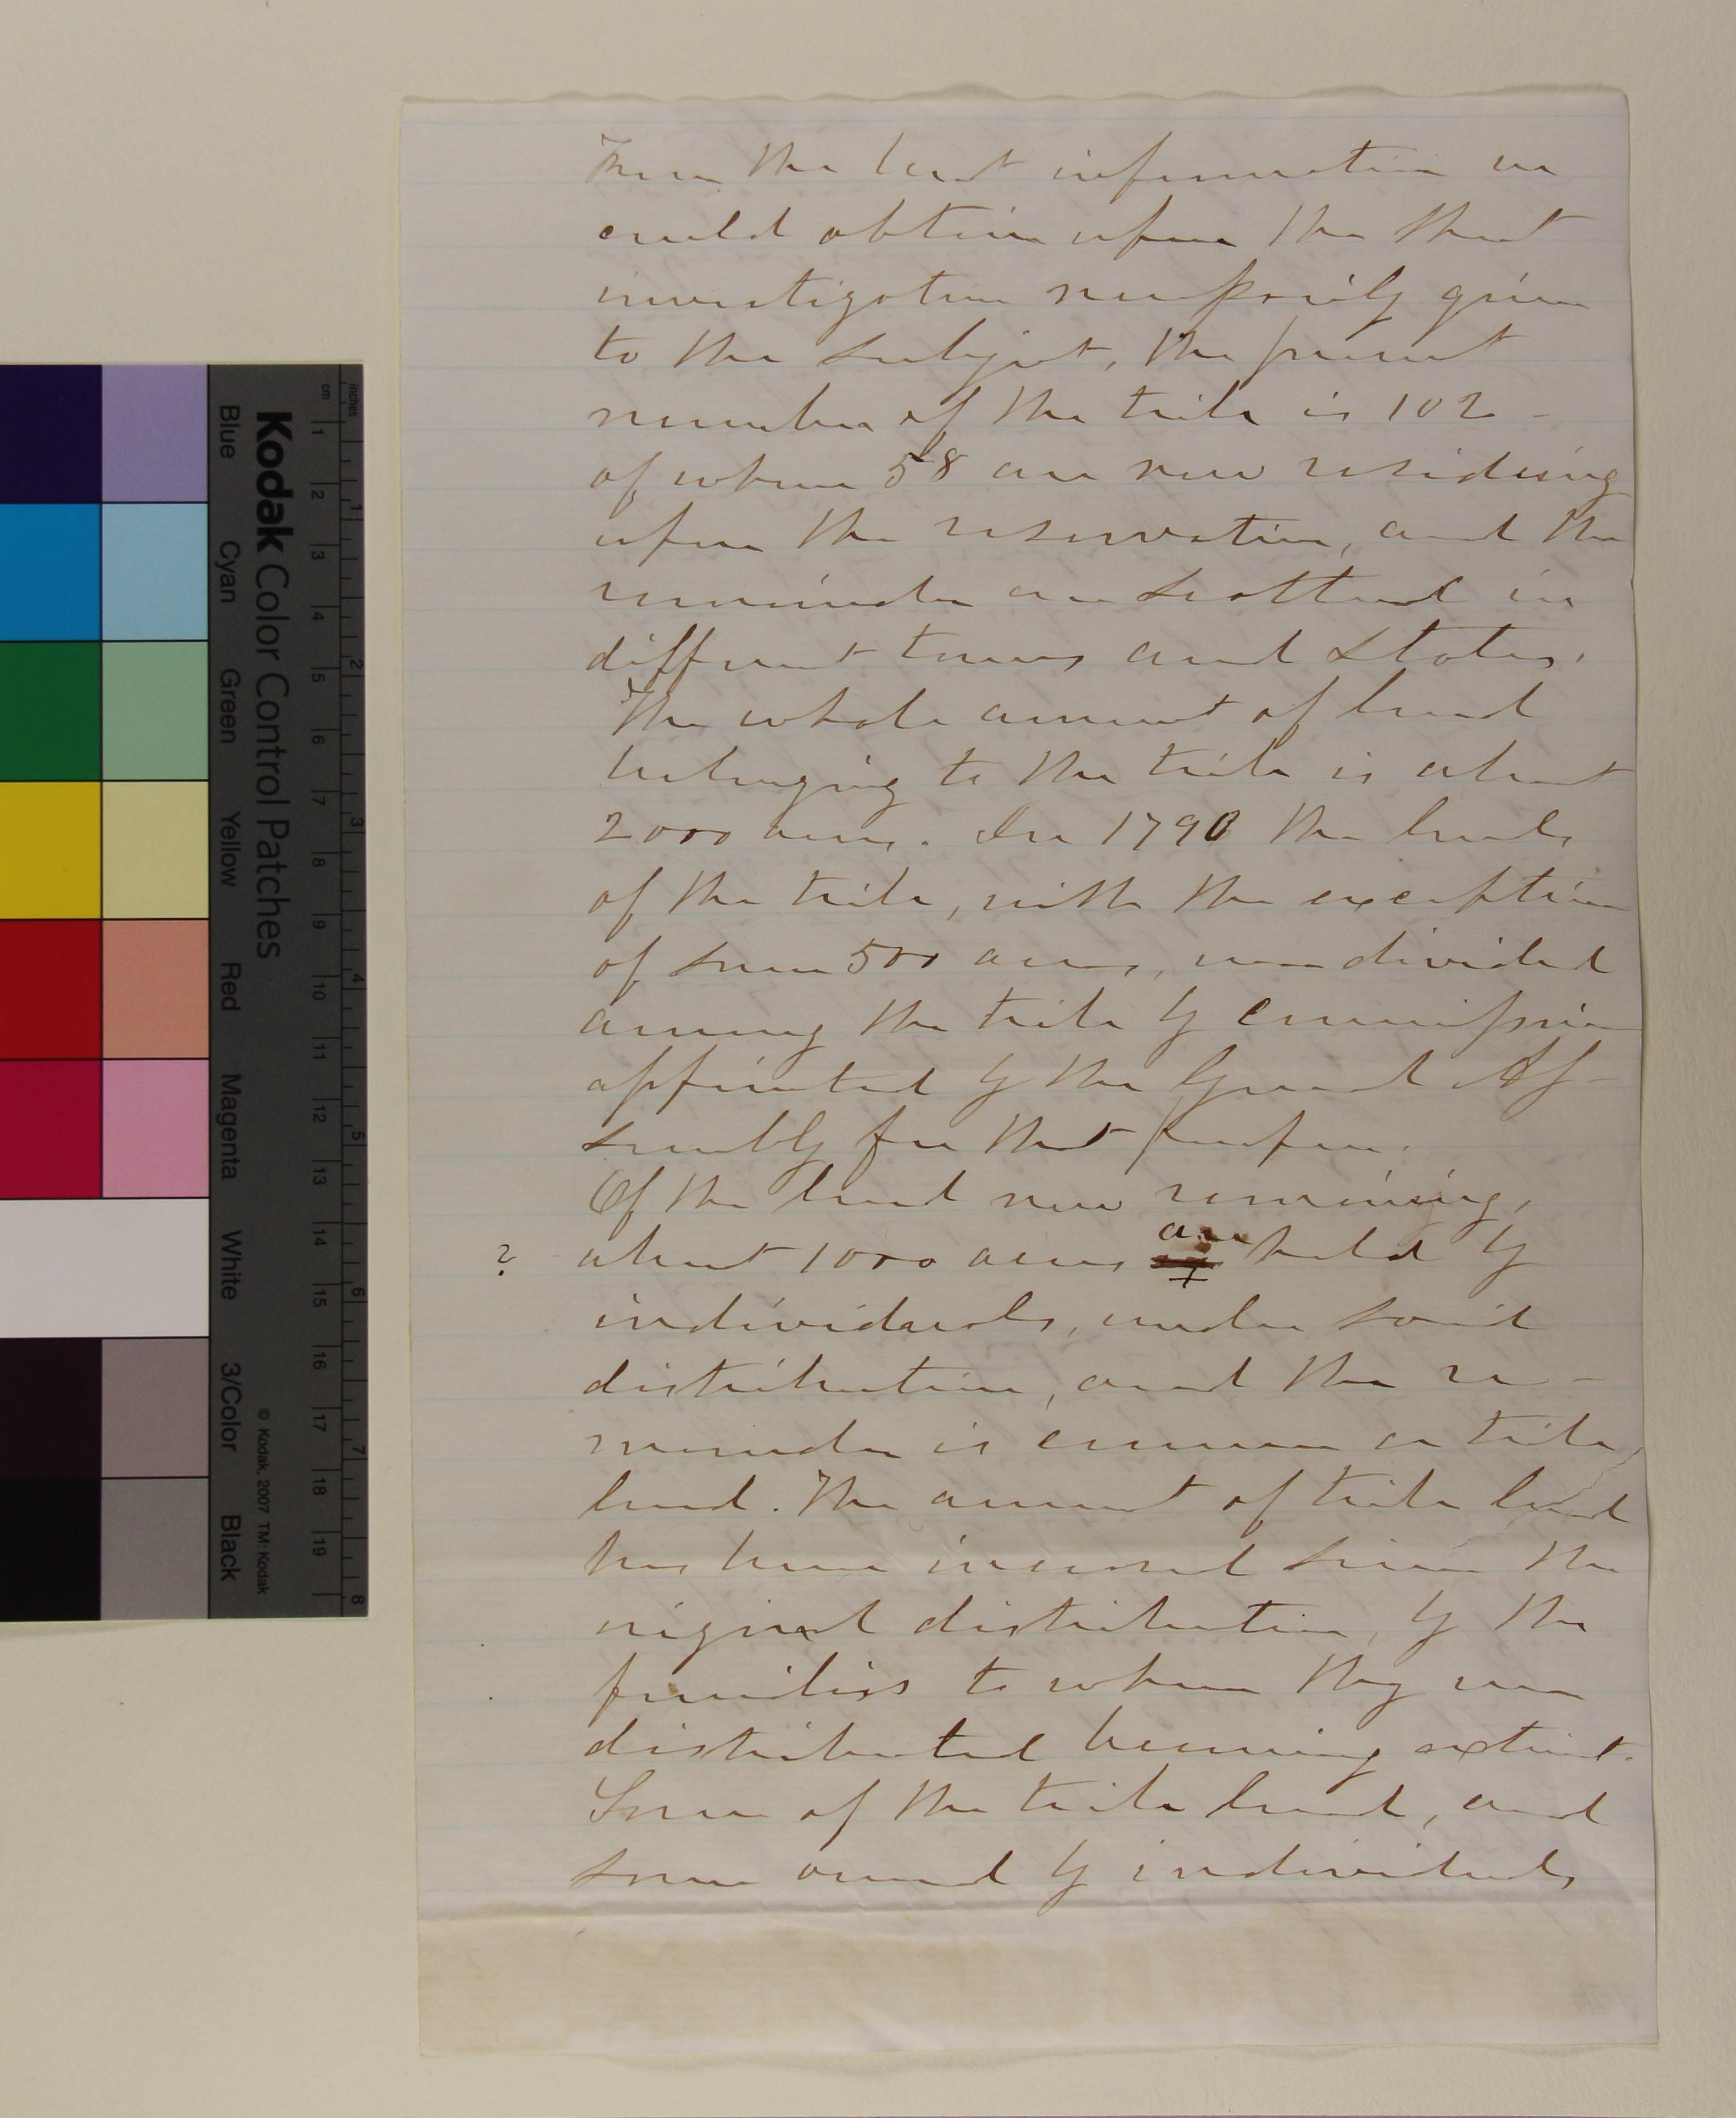 From the best information we
could obtain upon the short
investigation necessarily given
to the subject, the present
number of the tribe is 102 -
of whom 58 are now residing
upon the reservation, and the
remainder are scattered in
different towns and states.
The whole amount of land
belonging to the tribe is about
2000 acres. In 1790 the lands
of the tribe, with the exception
of some 500 acres, were divided
among the tribe by commission
appointed by the General As-
sembly for that purpose.
Of the land now remaining,
are
? about 1000 acres held by
individuals, under said
distribution, and the re-
mainder is common or tribe
land. The amount of tribe land
has been increased since the
original distribution, by the
families to whom they were
distributed becoming extinct.
Some of the tribe land, and
some owned by individuals
Kodak Color Control Patches
Blue Cyan Green Yellow Red Magenta White 3/Color Black
© Kodak, 2007 TM: Kodak
inches 1 2 3 4 5 6 7 8
cm 1 2 3 4 5 6 7 8 9 10 11 12 13 14 15 16 17 18 19